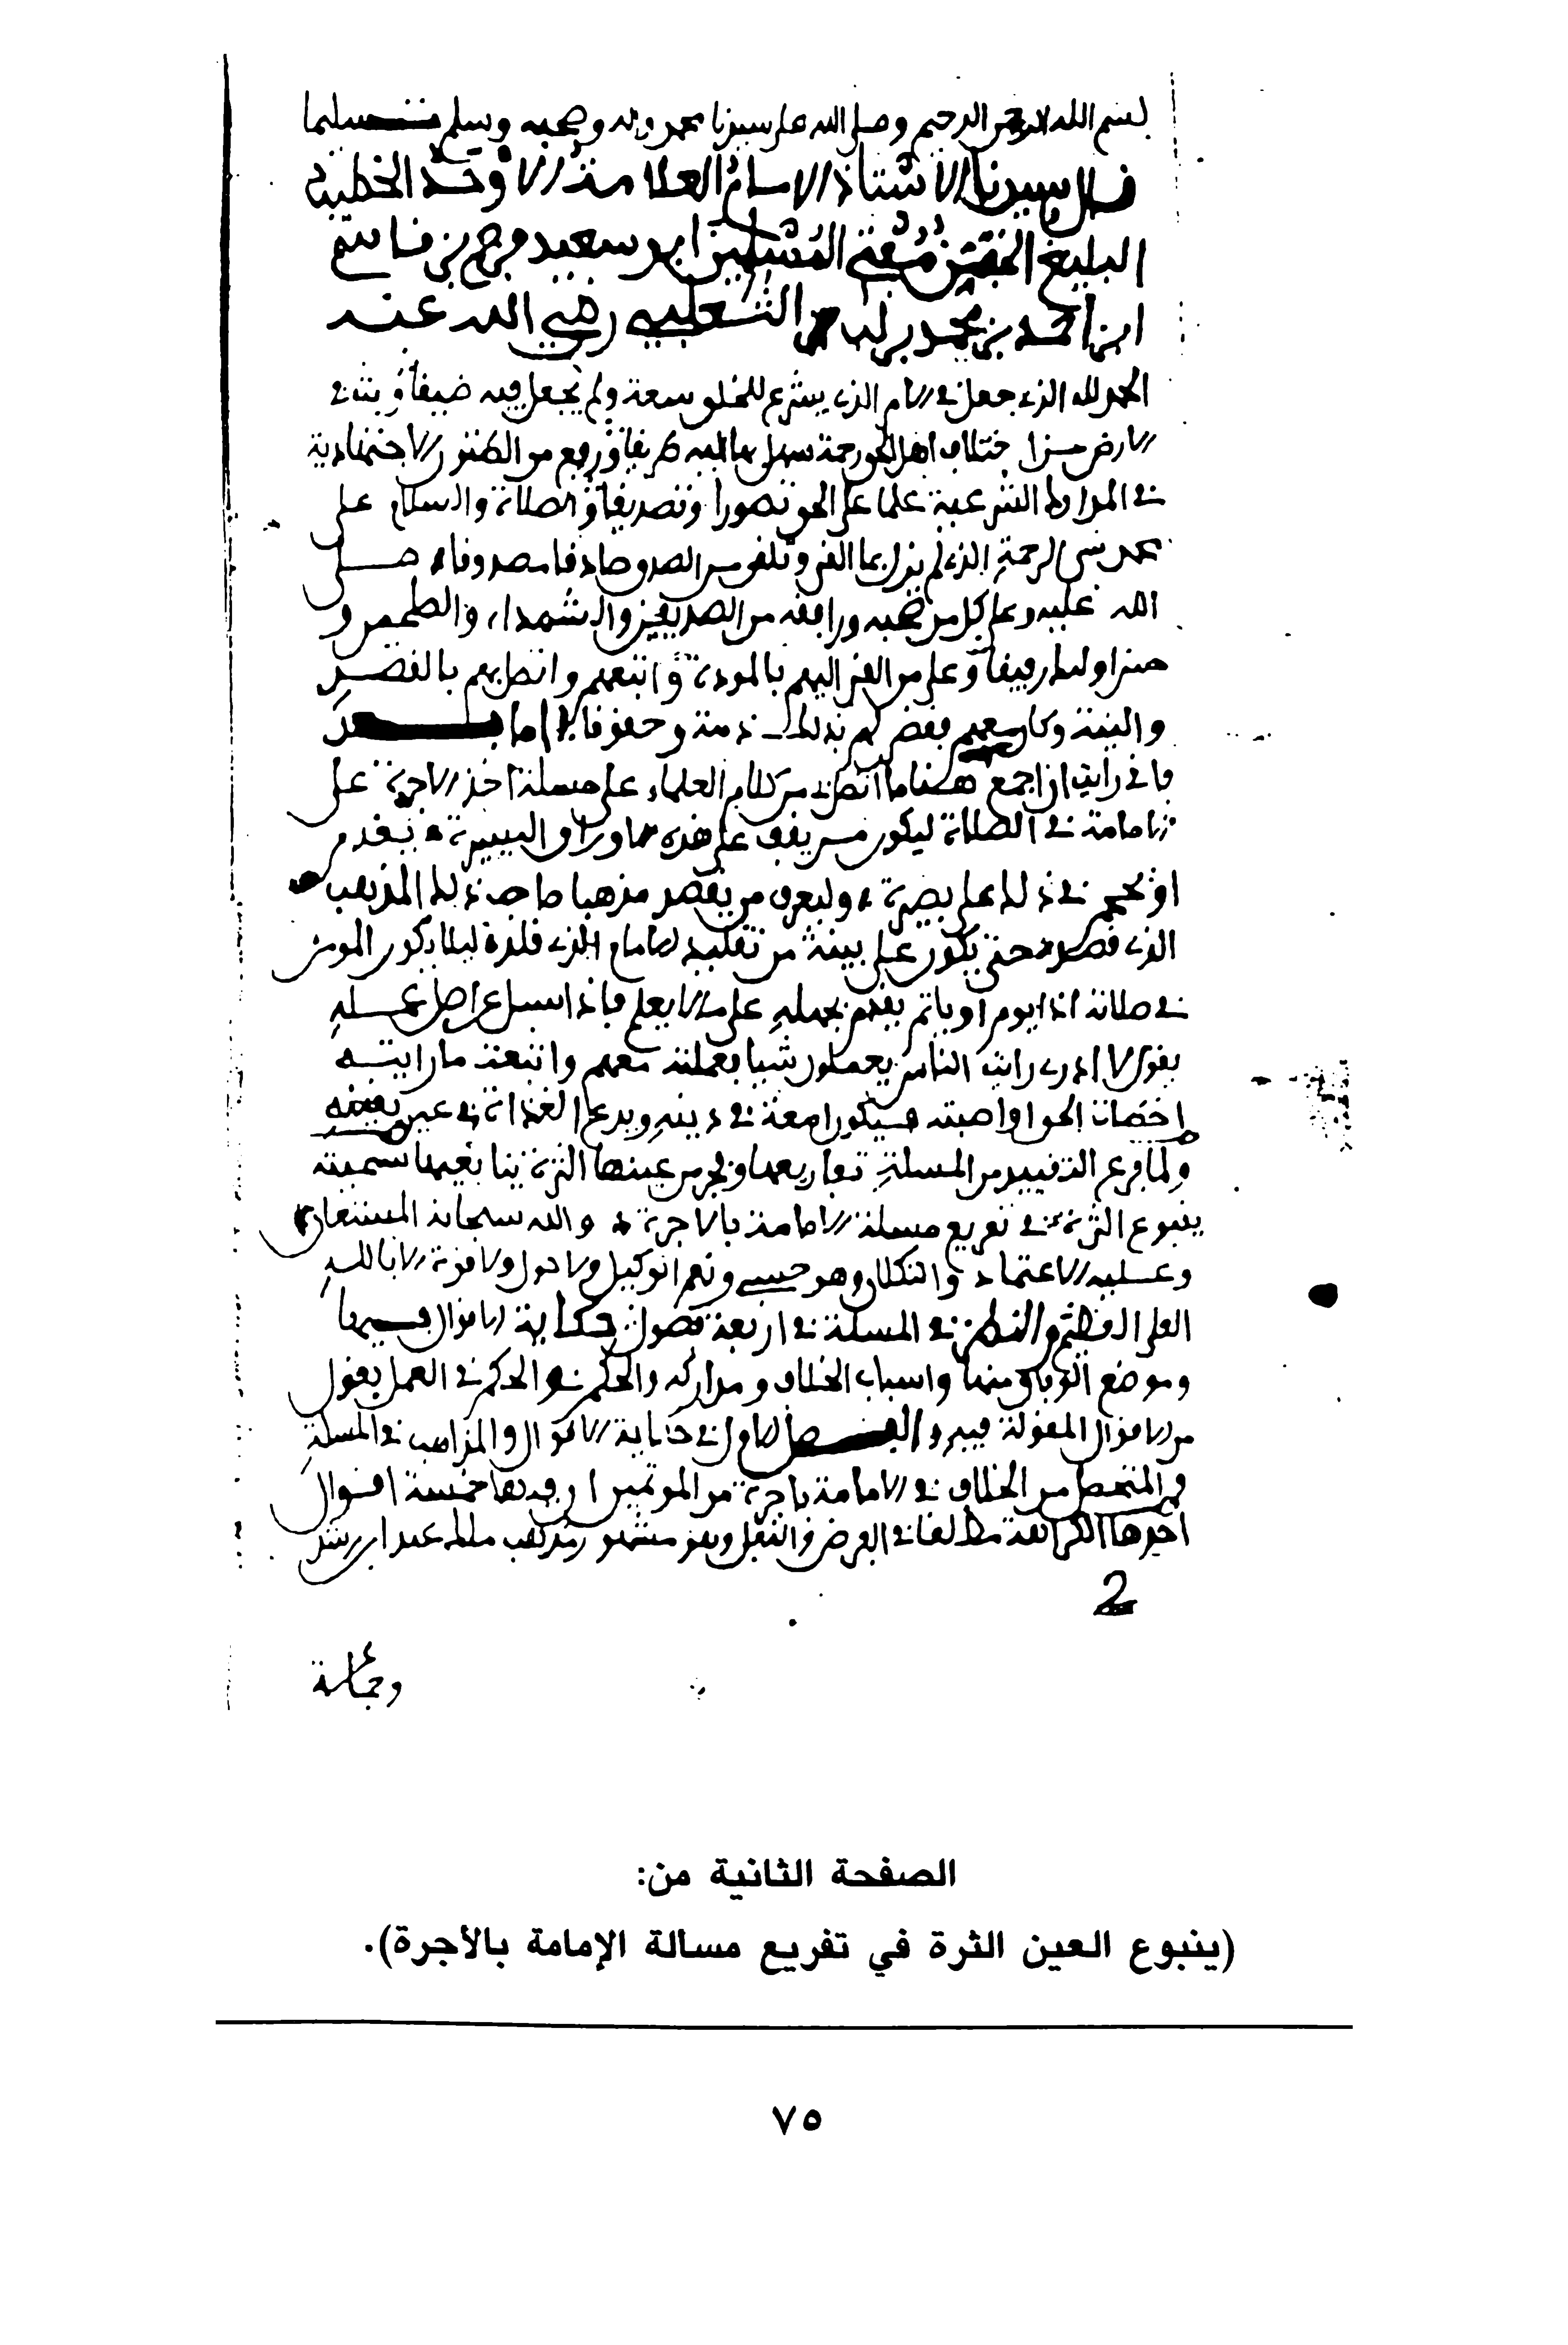 بسم الله الرحمن الرحيم وصلى الله على سيدنا محمد وءاله وصحبه وسلم تسليما
قال سيدنا الأستاذ الإمام العلامة الأوحد الخطيب
البليغ المتفنن مفتي المسلمين ابو سعيد فرج بن قاسم
ابن احمد بن محمد بن لب الثعلبي رضي الله عنه
الحمد لله الذي جعل في الأمر الذي شرع للخلق سعة ولم يجعل فيه ضيقا وبث في
الأرض من اختلاف اهل الحق رحمة سهل بها اليه طريقا ورفع من الظنون الاجتهادية
في المدارك الشرعية علما على الحق تصورا وتصديقا والصلاة والسلام على
محمد نبي الرحمة الذي لم يزل بما القى وتلقى من الصدق صادقا مصدوقا صلى
الله عليه وعلى كل من صحبه ورافقه من الصديقين والشهداء والصالحين و
حسن اوليك رفيقا وعلى من القى اليهم بالمودة واتبعهم واتصل بهم بالقصد
والنية وكان معهم فقضى لهم بذلك ذمة وحقوقا اما بعد
فاني رايت ان اجمع هنا ما اتصل بي من كلام العلماء على مسلة اخذ الاجرة على
الامامة في الصلاة ليكون من يقف على هذه الاوراق اليسيرة يقدم
او يحجم في ذلك على بصيرة وليعرف من يقصد مذهبا صاحب ذلك المذهب
الذي قصده حتى يكون على بينة من تقليد الامام الذي قلده ليلا يكون المومن
في صلاته اذا يوم او ياتم يقدم بجهله على ما لا يعلم فاذا اسيل عن اصل عمله
يقول لا ادري رايت الناس يعملون شيا فعملته معهم واتبعت ما رايته
اخطات الحق او اصبته فيكون امعة في دينه ويدع القذاة في عين يقينه
ولما فرع التقييد من المسلة تفاريعها وفجر من عينها الثرة ينابيعها سميته
ينبوع الثرة في تفريع مسلة الامامة بالاجرة والله سبحانه المستعان
وعليه الاعتماد والتكلان وهو حسبي ونعم الوكيل ولا حول ولا قوة الا بالله
العلي العظيم والنظر في المسلة في اربعة فصول حكاية الاقوال فيها
وموضع الوفاق منها واسباب الخلاف ومداركه والحكم في العمل بقول
من الاقوال المقولة فيه الفصل الاول في حكاية الاقوال والمذاهب في المسلة
المتحصل من الخلاف في الامامة باجرة من المومين او غيرها خمسة اقوال
احدها الكراهة مطلقا في الفرض والنفل وهو مشهور مذهب ملك عند ابن رشد
2
وجماعة
الصفحة الثانية من:
(ينبوع العين الثرة في تفريع مسالة الإمامة بالأجرة).
٧٥